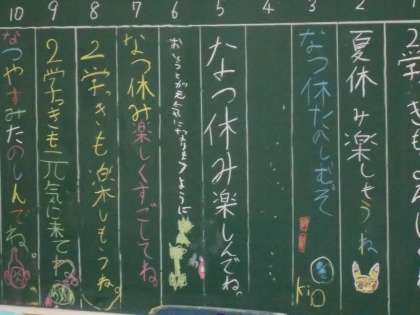 10 9 8 7 6 5 4 3 2
2学きも
夏休み楽しもうね。
なつ休たのしむぞ
なつ休み楽しんでね。
おとうとが元気になりますように
なつ休み楽しくすごしてね。
2学っきも楽しもうね。
2学っきも元気に来てね
なつやすみたのしんでね。